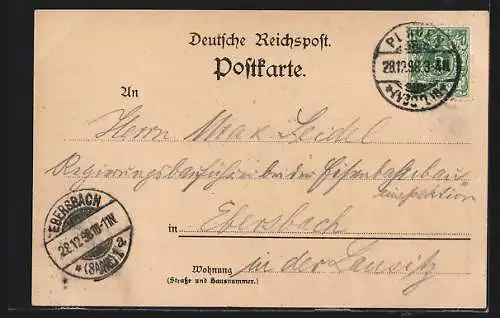 Deutsche Reichspost.
Postkarte.
PLAUEN
28.12.98.3-4N
An
Herrn Max Seidel
Regierungsbauführer bei der Eisenbahnbau
inspektion
EBERSBACH
28.12.98.10-11N
(SACHS)
in Ebersbach
Wohnung in der Lausitz
(Straße und Hausnummer.)